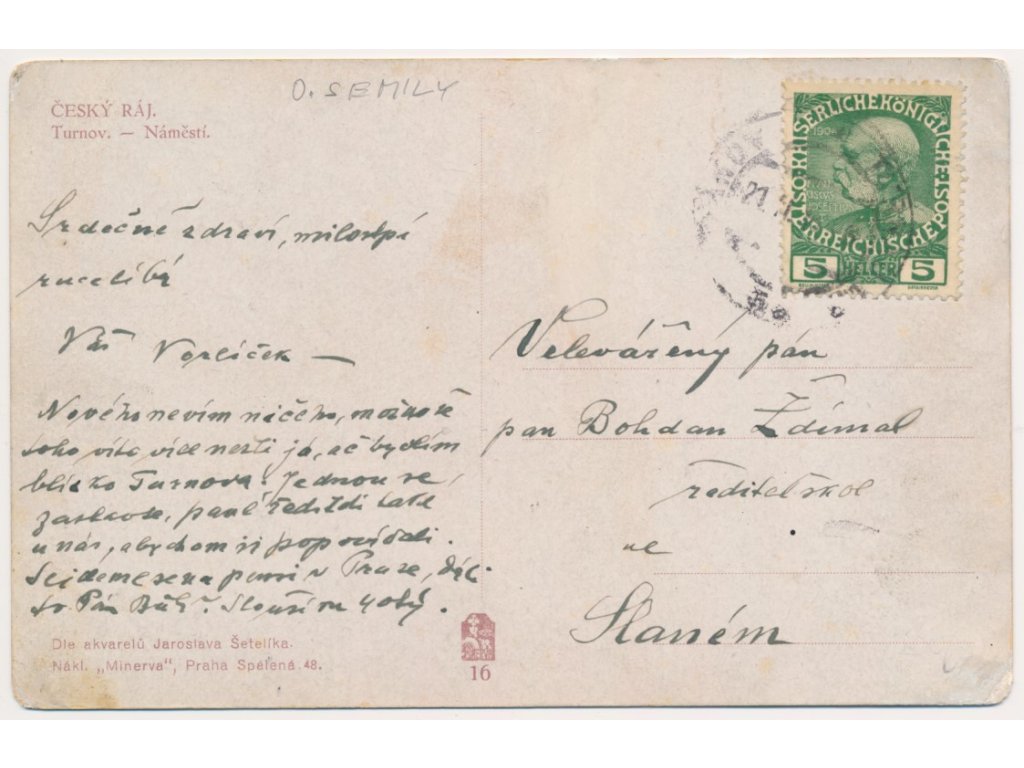 O. SEMILY
ČESKÝ RÁJ.
Turnov. — Náměstí.
Srdečně zdraví, milostpí
rucelíbá
Váš Vorlíček —
Nového nevím ničeho, možno že
toho víte více nežli já, ač bydlím
blízko Turnova. Jednou se
zastavte, pane řediteli také
u nás, abychom si popovídali.
Sejdeme se na pouti v Praze, dá-
li Pán Bůh.
Dle akvarelů Jaroslava Šetelíka.
Nákl. „Minerva", Praha Spálená 48.
16
KAISERLICHEKÖNIGLICHE
ÖSTERREICHISCHE POST
1908
5 HELLER 5
Velevážený pán
pan Bohdan Ždímal
ředitel škol
ve
Slaném